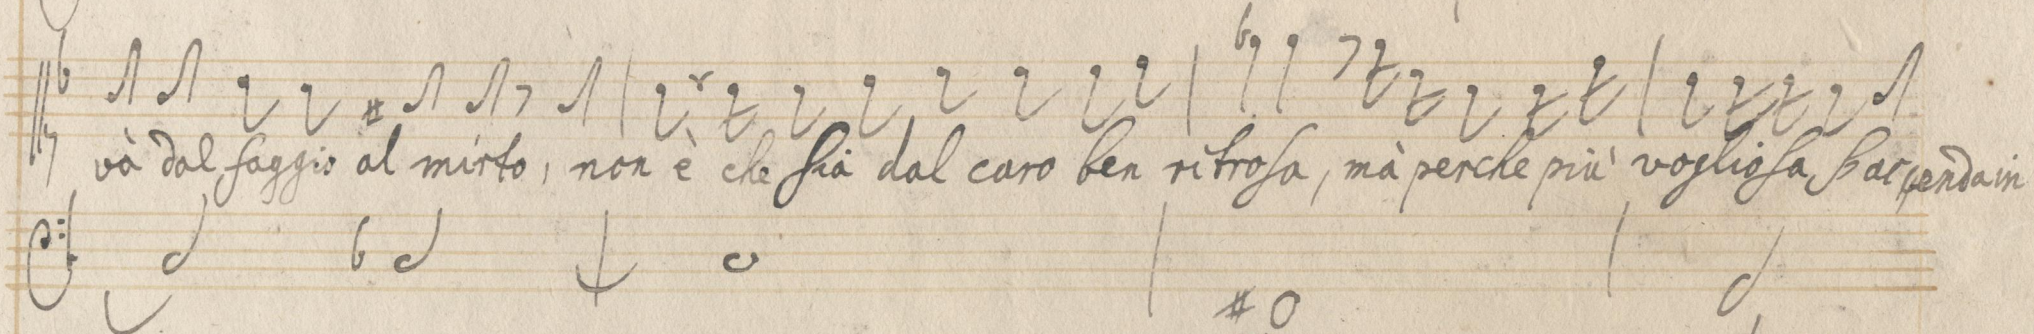 và dal faggio al mirto, non è che sia dal caro ben ritrosa, mà perche più vogliosa s'accenda in